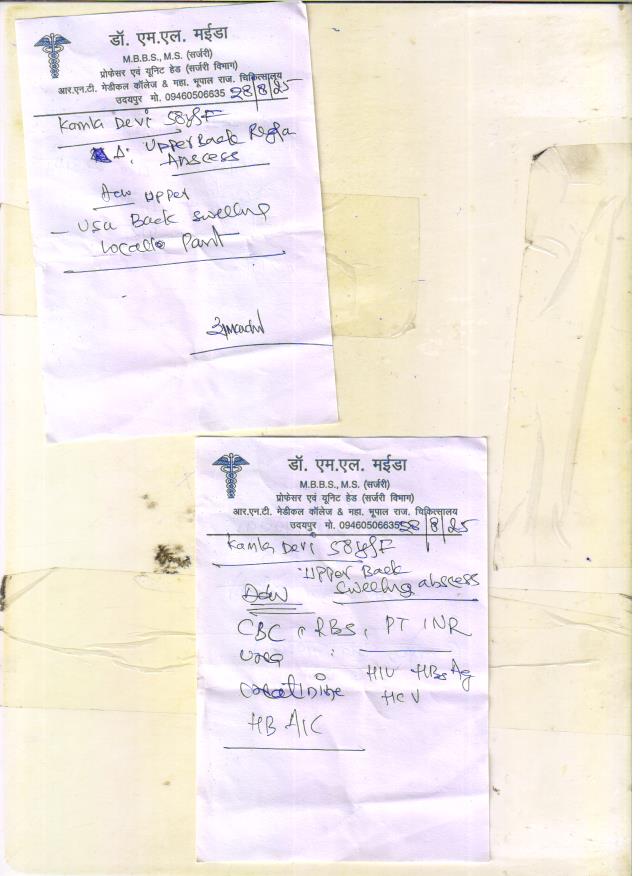 डॉ. एम.एल. मईडा
M.B.B.S., M.S. (सर्जरी)
प्रोफेसर एवं यूनिट हेड (सर्जरी विभाग)
आर.एन.टी. मेडीकल कॉलेज & महा. भूपाल राज. चिकित्सालय
उदयपुर मो. 09460506635 28/8/25
Kamla Devi 58y/F
Δ: Upper Back
Anscess
Adv Upper
- USG Back swelling
Local Part
डॉ. एम.एल. मईडा
M.B.B.S., M.S. (सर्जरी)
प्रोफेसर एवं यूनिट हेड (सर्जरी विभाग)
आर.एन.टी. मेडीकल कॉलेज & महा. भूपाल राज. चिकित्सालय
उदयपुर मो. 09460506635 28/8/25
Kamla Devi 58y/F
Upper Back
Adv swelling abscess
CBC, RBS, PT INR
urea HIV HBsAg
creatinine HCV
HBA1C